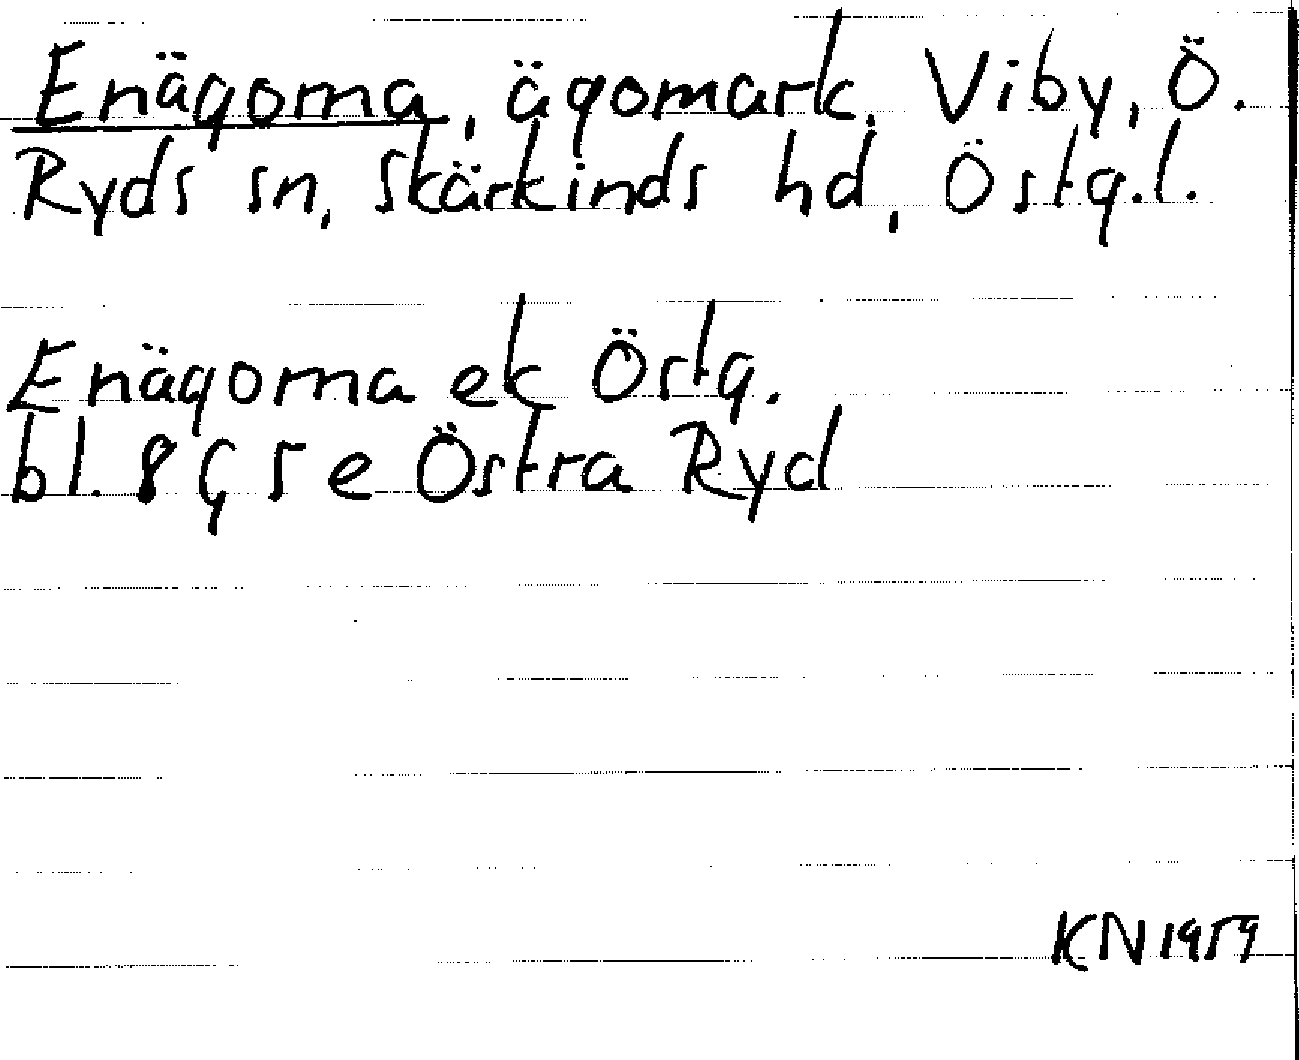 Enägorna, ägomark, Viby, Ö.
Ryds sn, Skärkinds hd, Östg.l.
Enägorna ek Östg.
bl. 8 G 5 e Östra Ryd
KN 1959